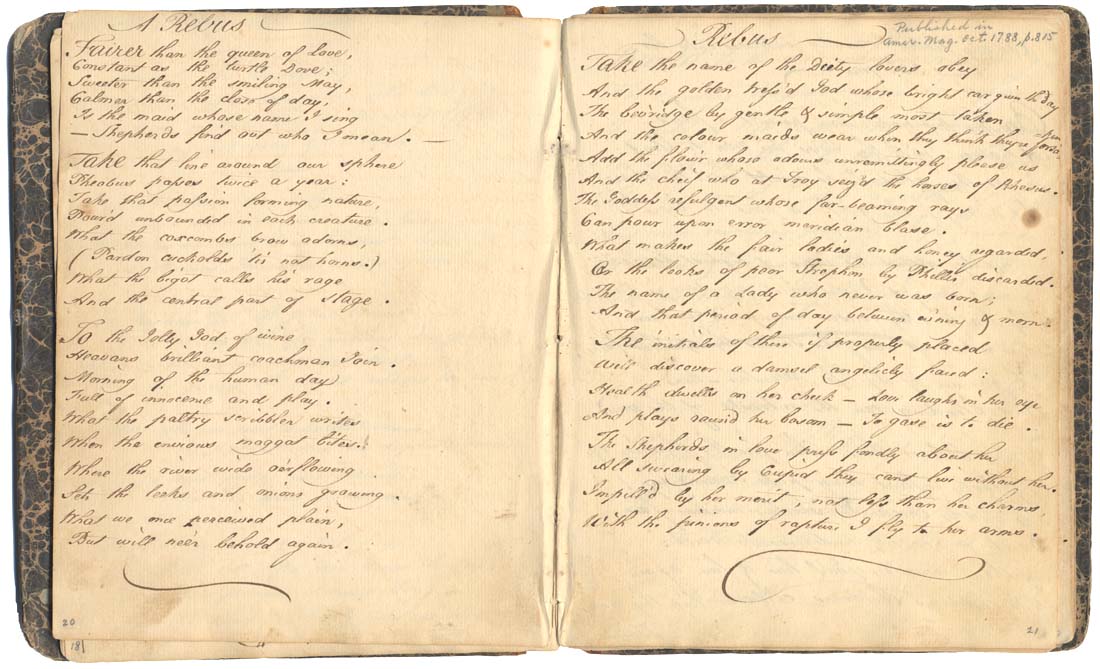 A Rebus
Fairer than the queen of love,
Constant as the turtle Dove;
Sweeter than the smiling May,
Calmer than the close of day,
Is the maid whose name I sing
— Shepherds find out who I mean. —
Take that line around our sphere
Pheobus passes twice a year:
Take that passion forming nature,
Pour'd unbounded in each creature.
What the coxcombs brow adorns,
(Pardon cuckolds 'tis not horns.)
What the bigot calls his rage
And the central part of Stage.
To the Jolly God of wine
Heavans brilliant coachman Join.
Morning of the human day
Full of innocence and play.
What the paltry scribbler writes
When the envious maggot bites.
Where the river wide o'erflowing
Sets the leeks and onions growing.
What we once perceived plain,
But will neer behold again.
20
18
Rebus
Published in
Amer. Mag. Oct. 1788, p. 815
Take the name of the Deity lovers obey
And the golden tress'd God whose bright car gives the day
The beveridge by gentle & simple most taken
And the colour maids wear when they think they're forsaken
Add the flow'r whose odours unremittingly please us
And the cheif who at Troy seiz'd the horses of Rhesus.
The Goddess refulgent whose far-beaming rays
Can pour upon error meridian blase.
What makes the fair ladies and honey regarded.
Or the looks of poor Strephon by Phillis discarded.
The name of a Lady who never was born;
And that period of day between evining & morn.
The initials of these if properly placed
Will discover a damsel angelicly faced:
Health dwells on her cheek — Love laughs in her eye
And plays round her bosom — To gase is to die.
The Shepherds in love press fondly about her
All swearing by Cupid they cant live without her.
Impell'd by her merit, not less than her charms
With the pinions of rapture I fly to her arms.
21